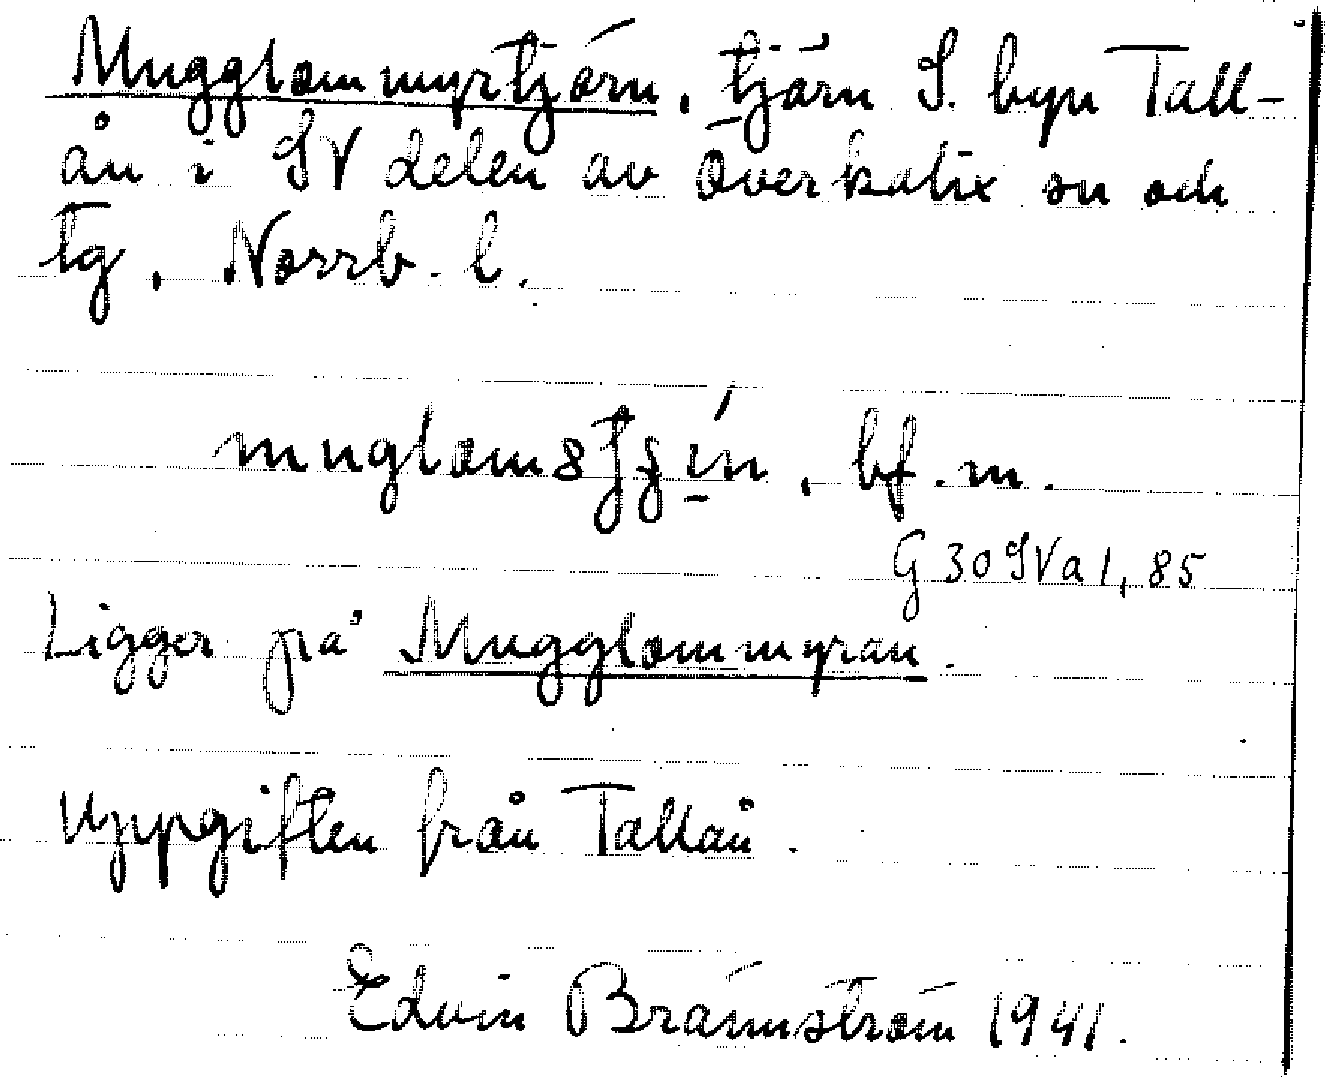 Mugglommyrtjärn, tjärn S. byn Tall-
ån i SV delen av Överkalix sn och
tg, Norrb. l.
bf. m.
G 30 SV a 1, 85
Ligger på Mugglommyran.
Uppgiften från Tallån.
Edvin Brännström 1941.